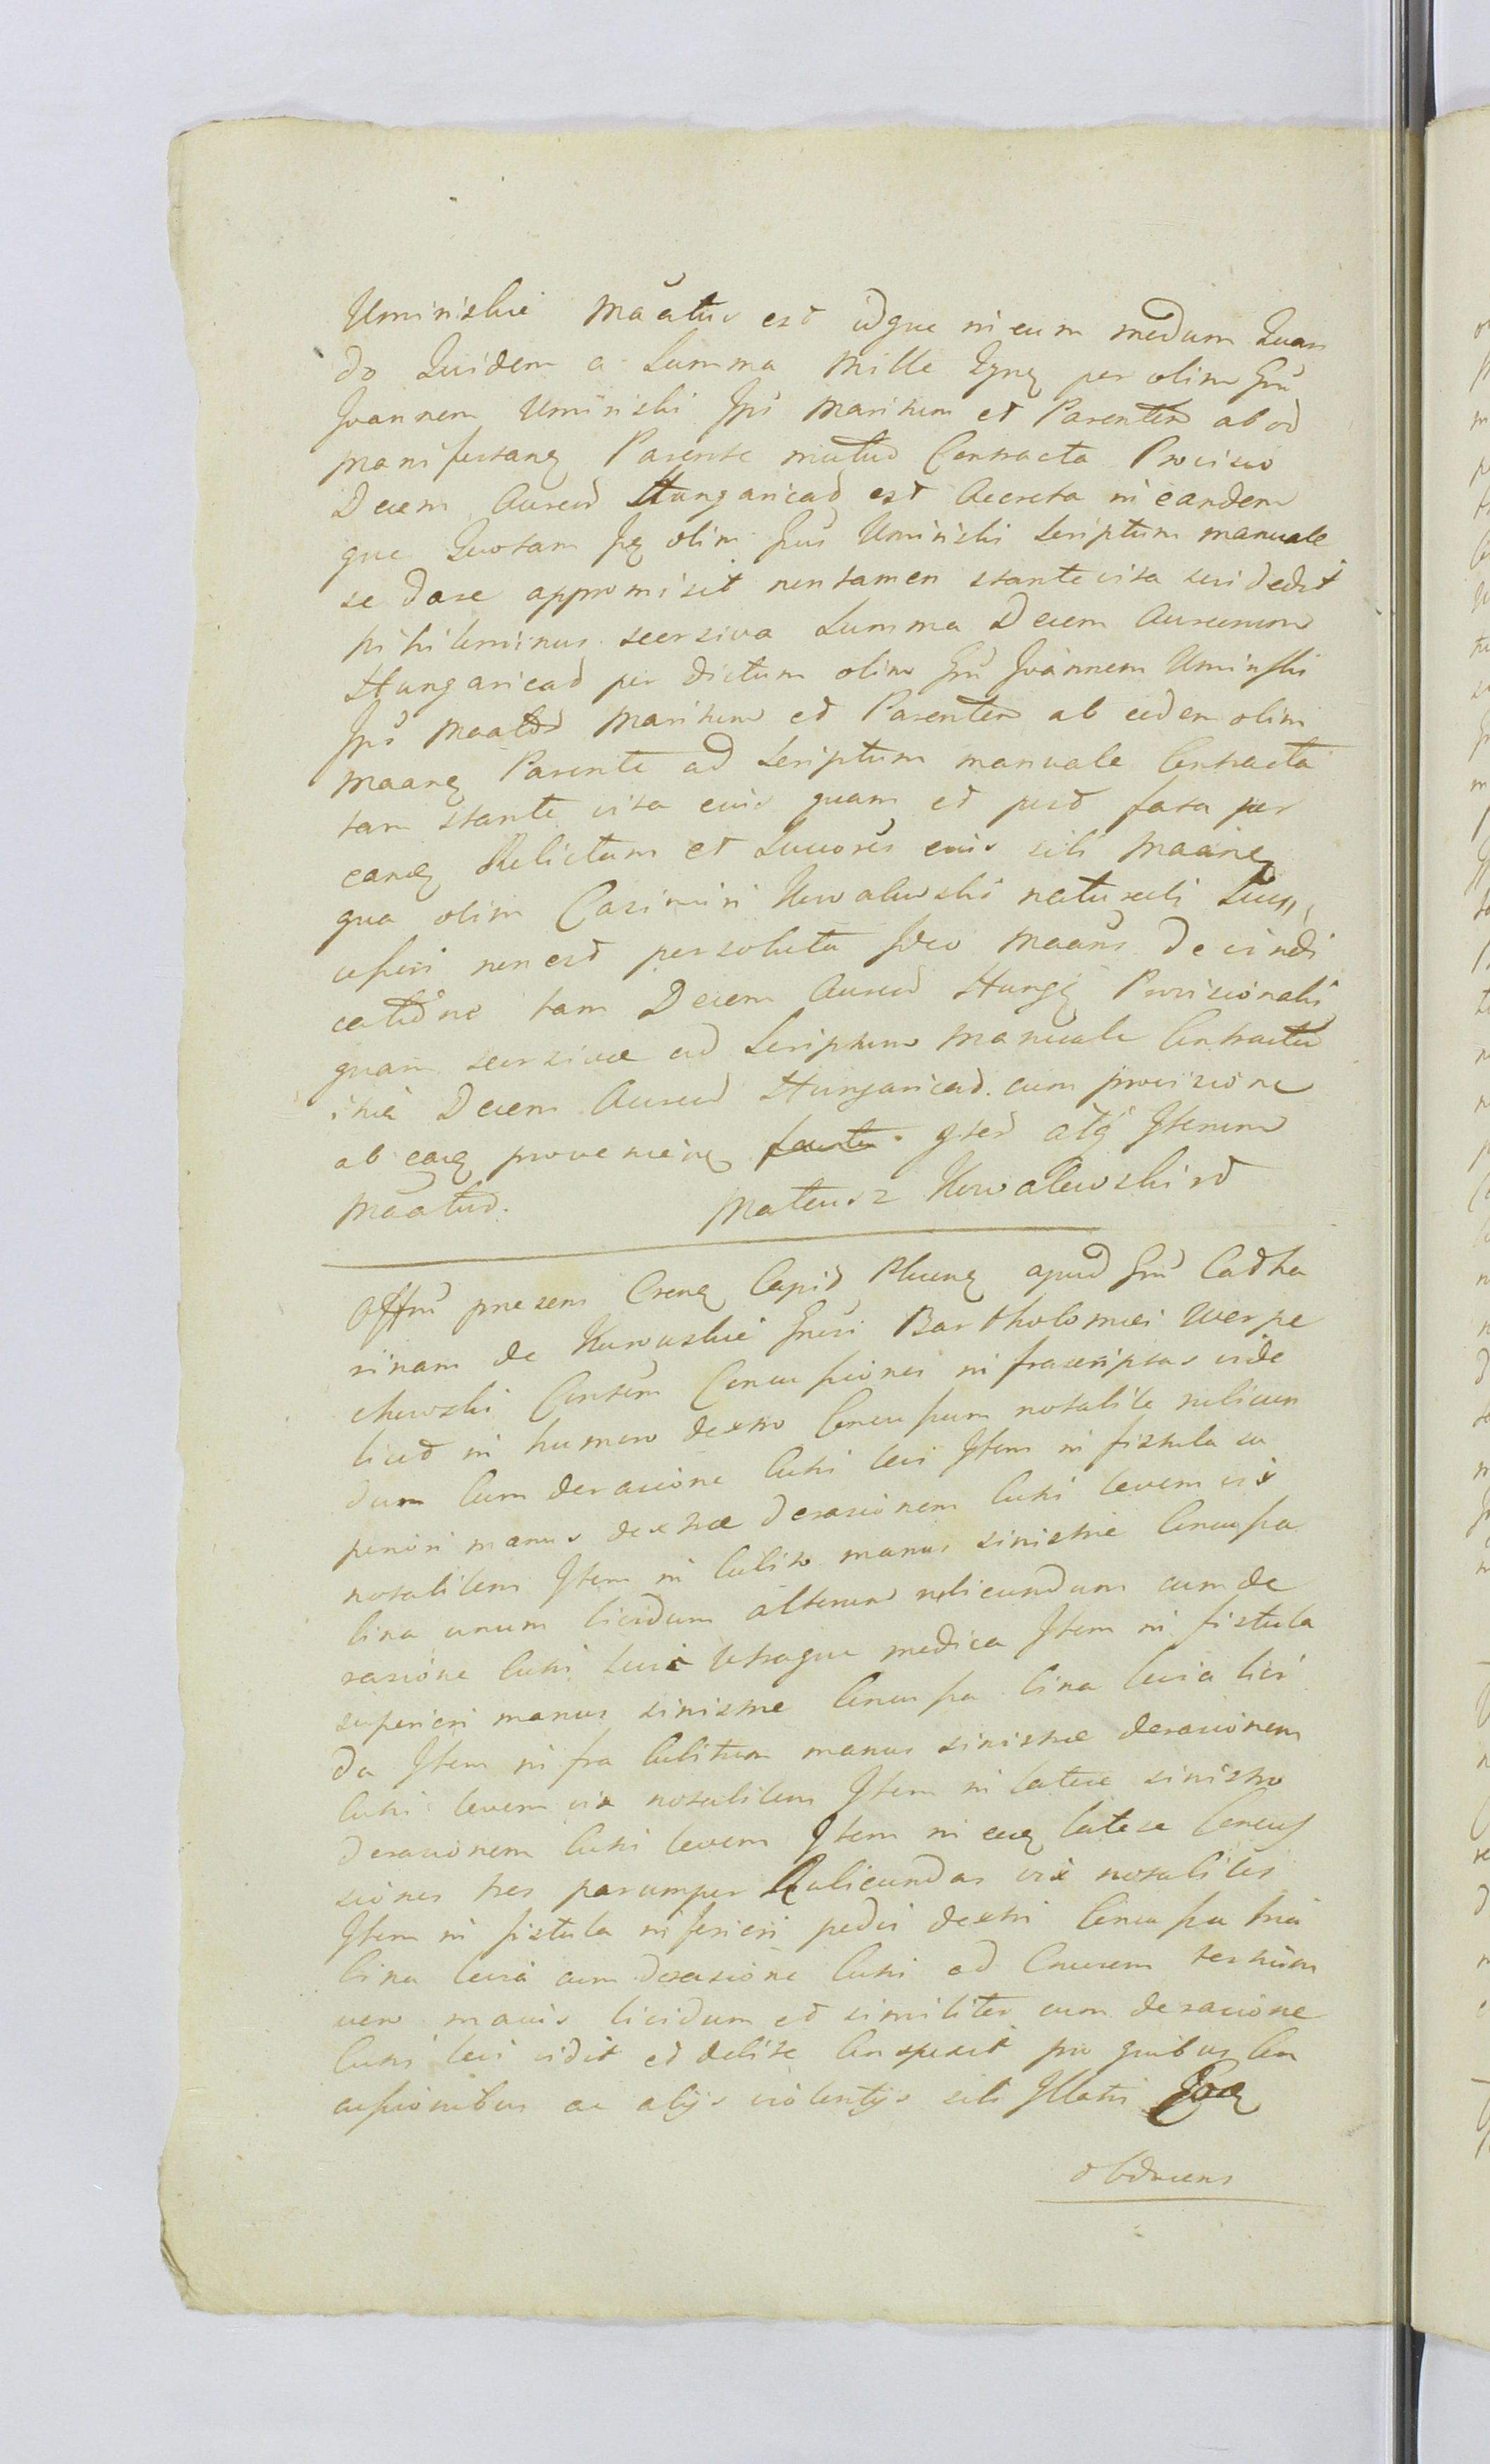 Uminskie māatus est idque in eum modum Quan
do Quidem a Summa Mille per olim Gnū
Joannem Uminski Ipsi Maritum et Parentem ab od
manifestanꝗ Parente mutuo Contracta Provisio
Decem Aureoꝝ Hungaricaꝝ est Accreta in eandem
que Quotam olim Gnūs Uminski Scriptum manuale
se dare appromisit non tamen stante vita sui dedit
nihilominus seorsiva Summa Decem Aureorum
Hungaricaꝝ per dictum olim Gnū Joannem Uminski
Maritum et Parentem ab eodem olim
Maanꝗ Parente ad Scriptum manuale Contracta
tam stante vita eius quam et post fata per
eanꝗ Relictam et Succores eius sibi Maanꝗ
qua olim Casimiri Kowalewski naturali Succ
cessori non est persoluta Ideo Maans de vindi
catione tam Decem Aureoꝝ Hungꝗ Provisionalis
quam seorsivae ad Scriptum Manuale Contractae
Decem Aureoꝝ Hungaricaꝝ cum provisione
ab eaꝗ proveniēn atq̄ Iterum
māatus. Mateusz Kowalewski
Offm̄ praesens Crenꝗ Capit apud Gnā Catha
rinam de Kurowskie Gnesi Bartholomei Werpe
chowski Consm̄ Concussiones infrascriptas vide
licet in humero dextro Concussum notabile rubicun
dum Cum derasione Cutis levi Item in fistula su
periori manus dextrae derasionem Cutis levem vix
notabilem Item in Cubito manus sinistrae Concussa
bina unum lividum alterum rubicundum cum de
rasione Cutis levi utraque medica Item in fistula
superiori manus sinistrae Concussa bina levia livi
da Item infra Cubitum manus sinistrae derasionem
Cutis levem vix notabilem Item in latere sinistro
derasionem Cutis levem Item in eoꝗ latere Concus
siones tres parumper Rubicundas vix notabiles
Item in fistula inferiori pedis dextri Concussa tria
bina levia cum derasione Cutis ad Cruorem tertium
vero maius lividum et similiter cum derasione
Cutis levi vidit et debite Conspexit pro quibus Con
cussionibus ac alijs violentijs sibi Illatis
obducens